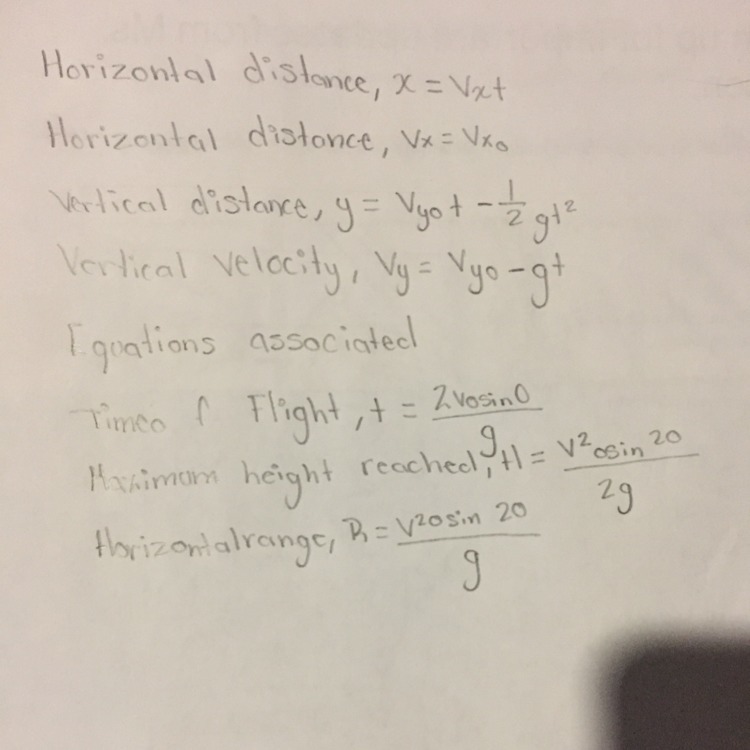 Horizontal distance, x = Vxt
Horizontal distance, Vx = Vx₀
Vertical distance, y = Vy₀t - 1/2 gt²
Vertical velocity, Vy = Vy₀ - gt
Equations associated
Timeo f Flight, t = 2vosin0/g
Maximum height reached, H = v²osin 20/2g
Horizontalrange, R = v²osin 20/g